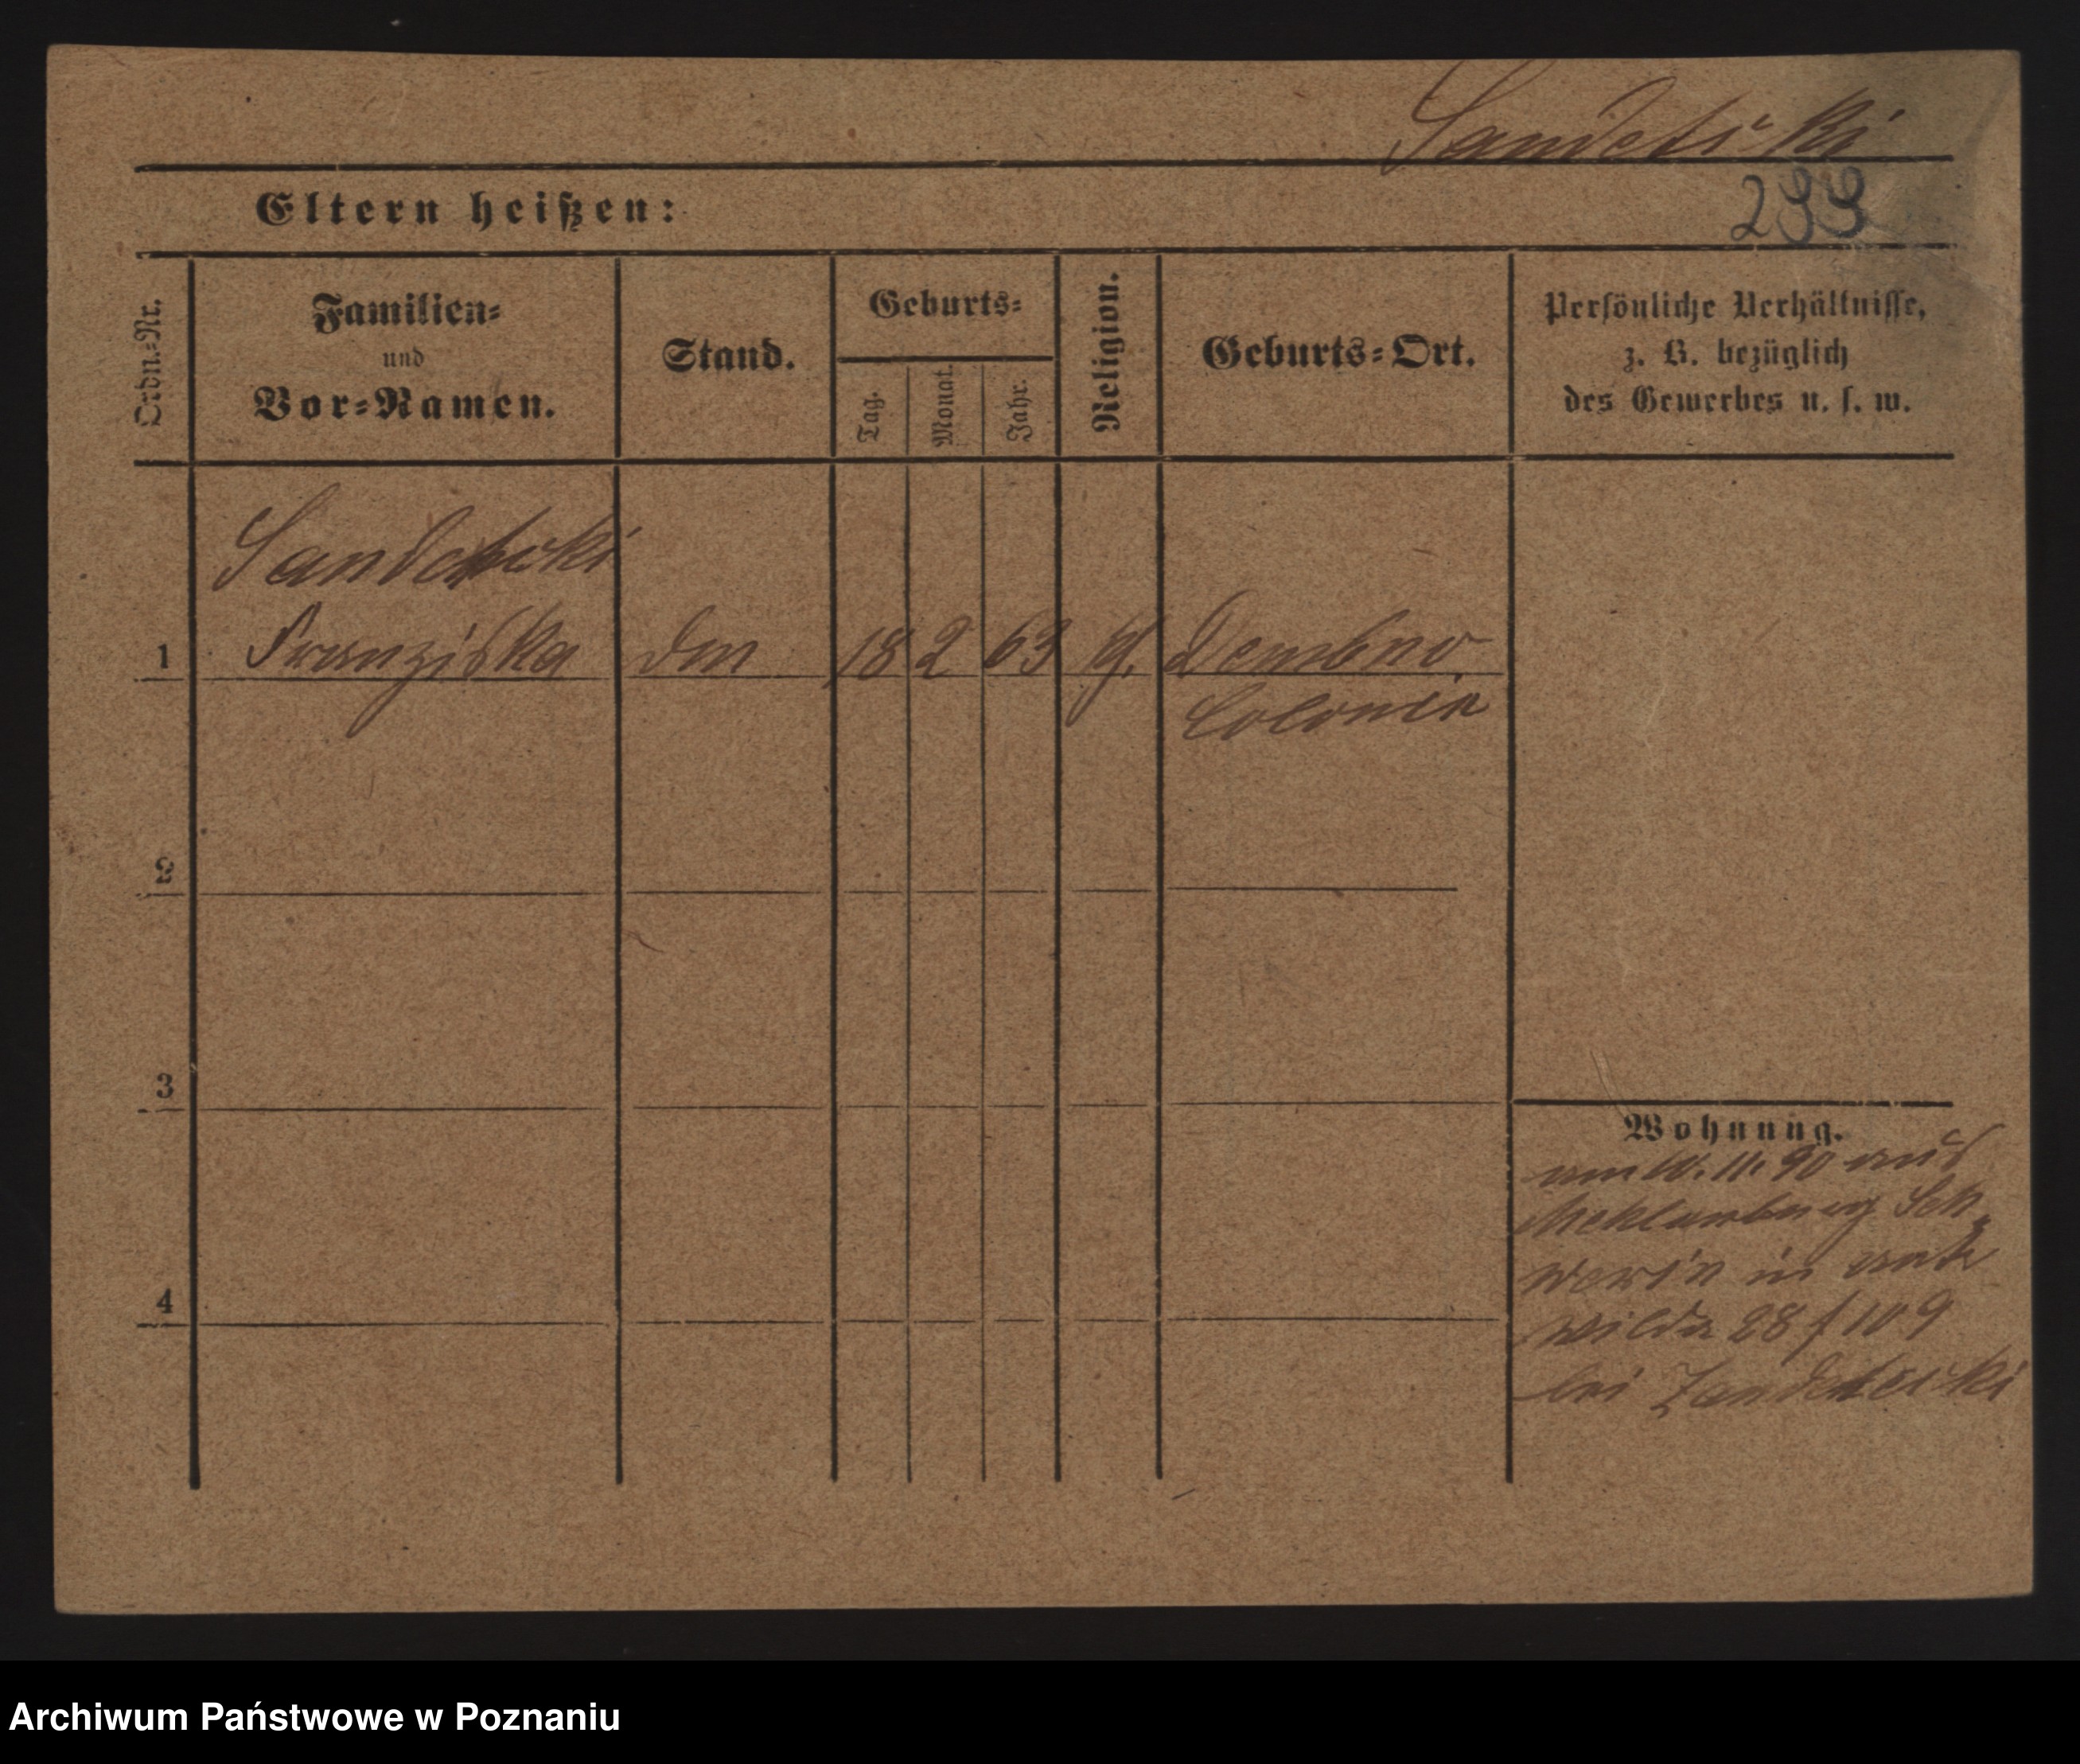 Sandecki
299
Eltern heißen:
Ordn.-Nr.
Familien-
und
Vor-Namen.
Stand.
Geburts-
Tag.
Monat.
Jahr.
Religion.
Geburts-Ort.
Persönliche Verhältnisse,
z. B. bezüglich
des Gewerbes u. s. w.
Sandecki
1 Franziska 18 2 63 Dembno
Colonie
2
3
Wohnung.
am 11. 90 aus
Meklenburg Sch
werin in
4
Wilda 28 f 109
bei
Archiwum Państwowe w Poznaniu